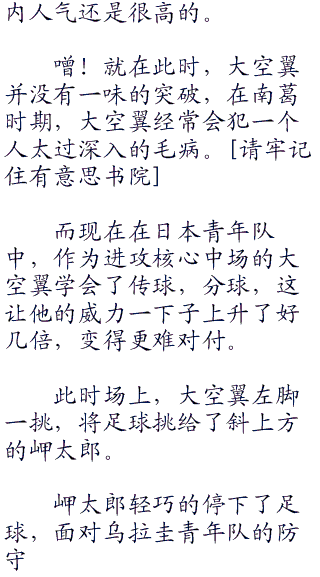 内人气还是很高的。
噌！就在此时，大空翼
并没有一味的突破，在南葛
时期，大空翼经常会犯一个
人太过深入的毛病。[请牢记
住有意思书院]
而现在在日本青年队
中，作为进攻核心中场的大
空翼学会了传球，分球，这
让他的威力一下子上升了好
几倍，变得更难对付。
此时场上，大空翼左脚
一挑，将足球挑给了斜上方
的岬太郎。
岬太郎轻巧的停下了足
球，面对乌拉圭青年队的防
守